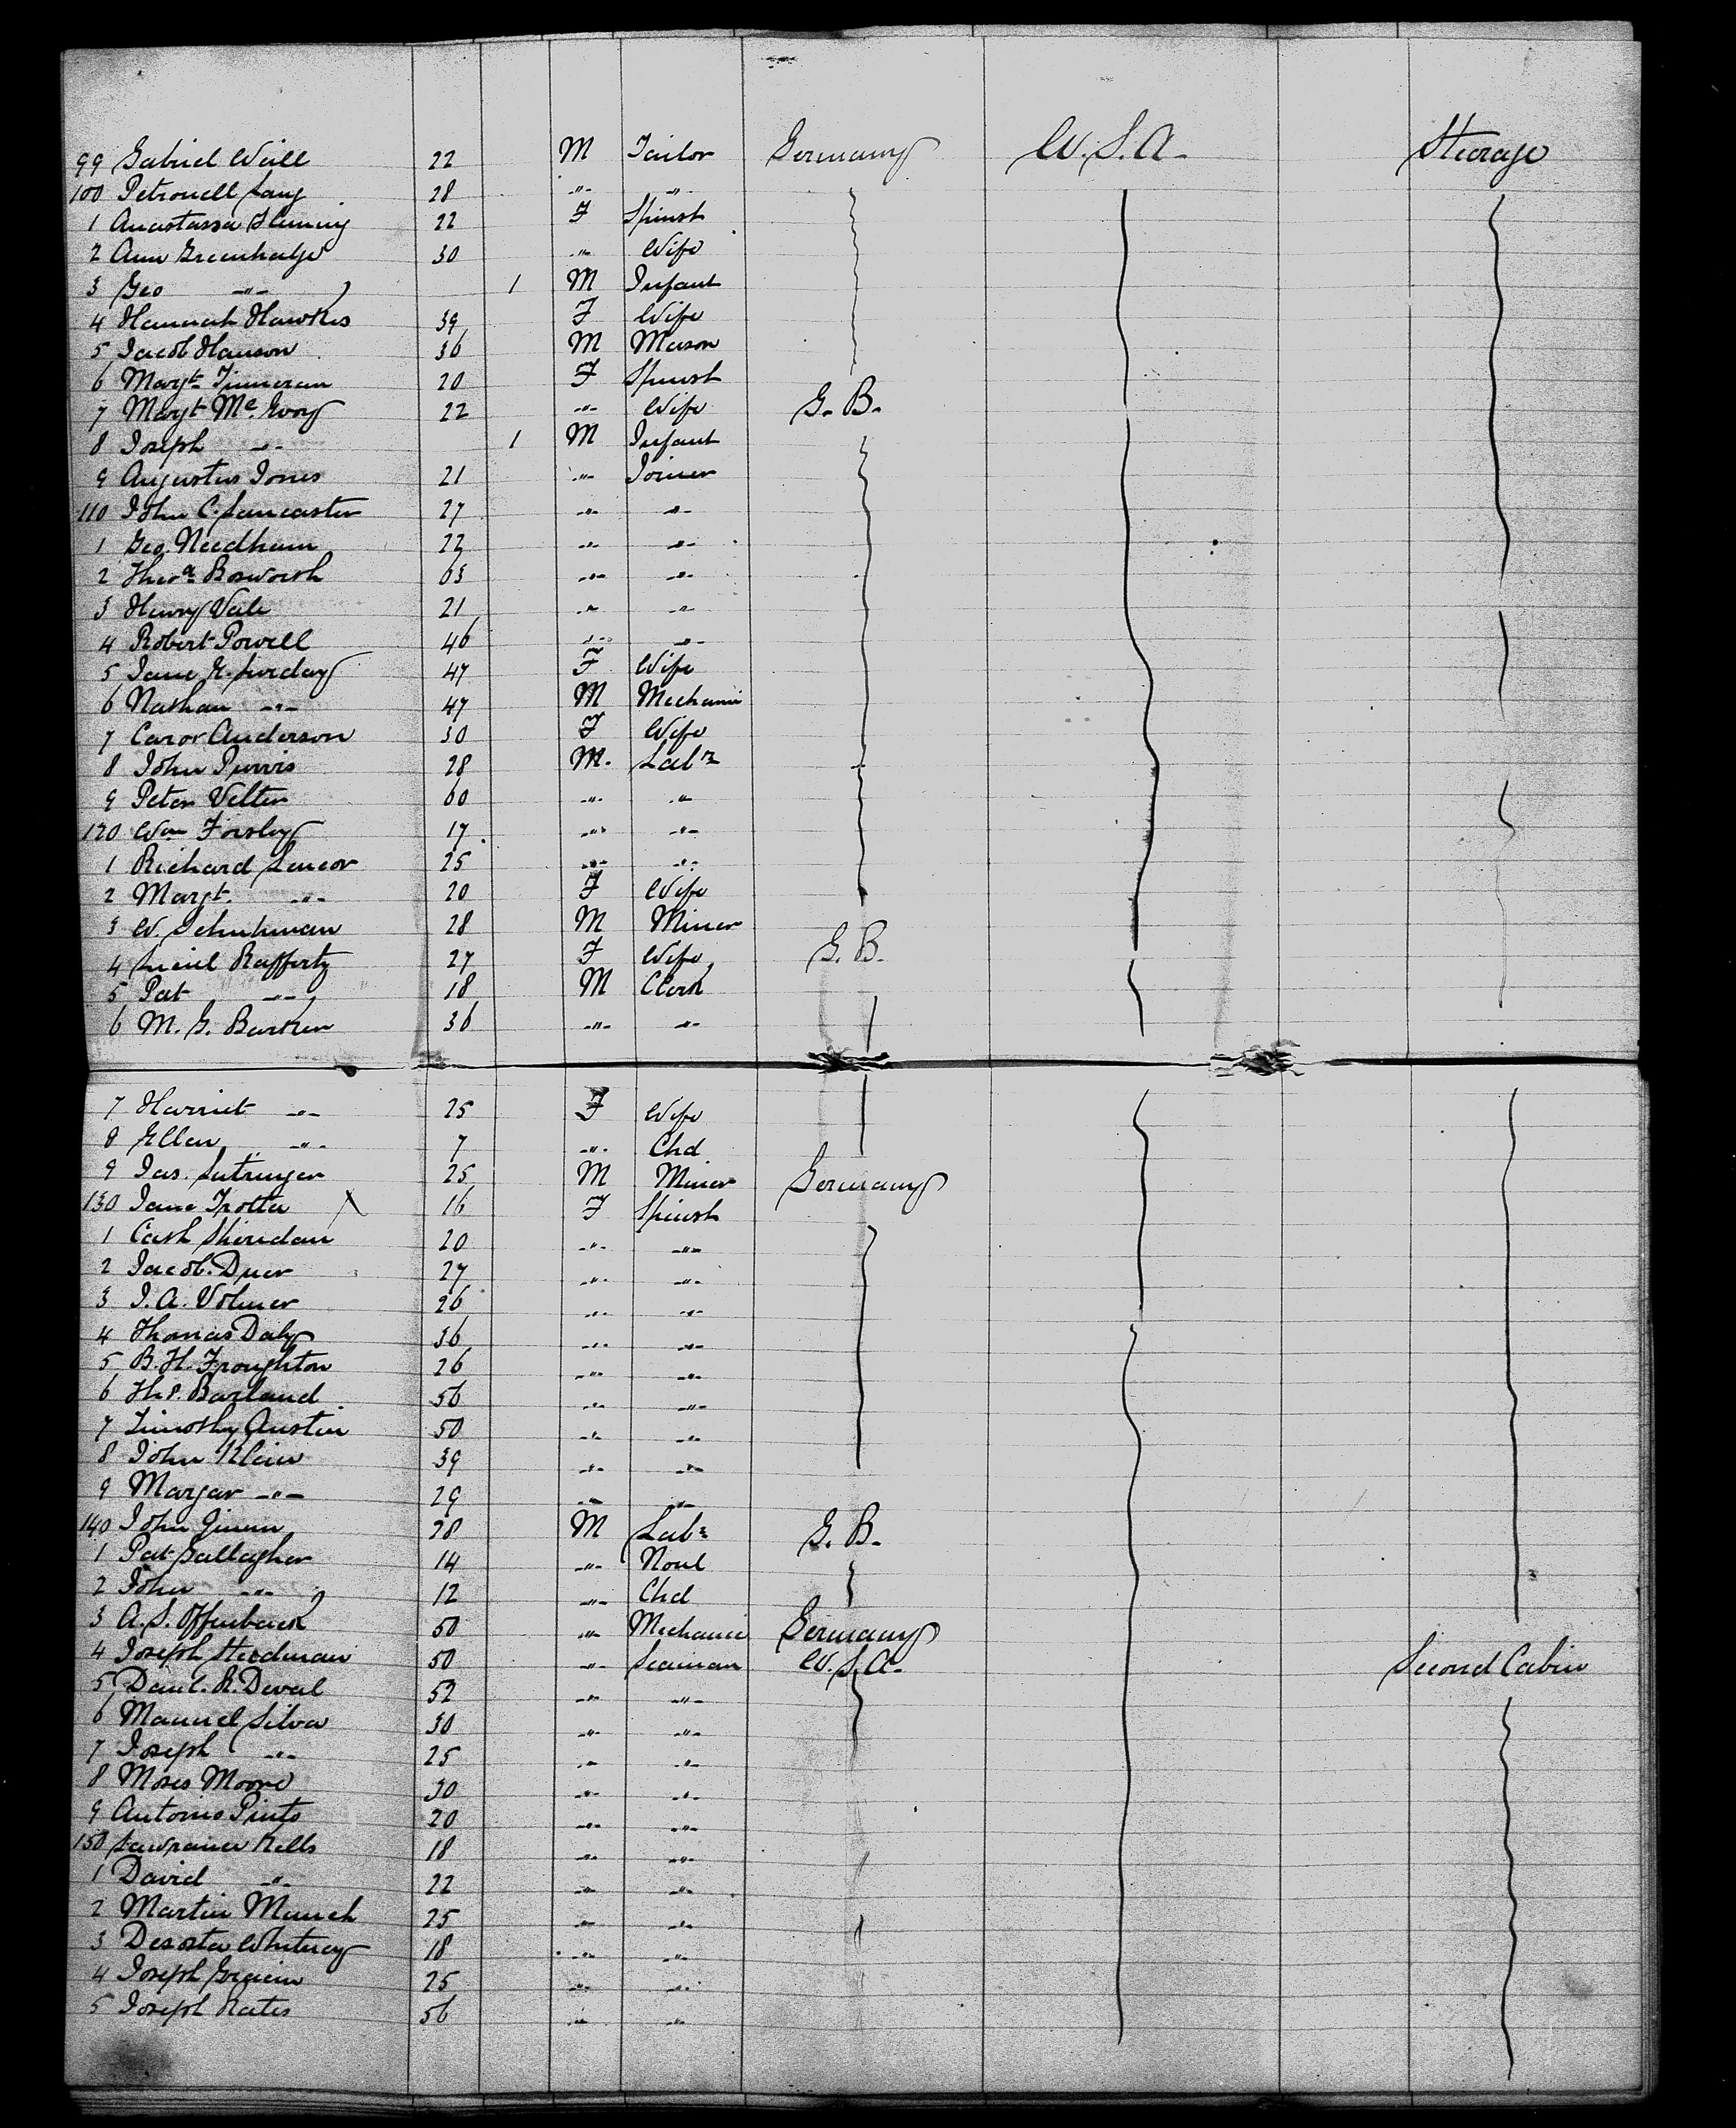 99 Gabriel Weill 22 M Tailor Germany U.S.A. Steerage
100 Petronell Lang 28 -"- -"-
1 Anastassa Fleming 22 F Spinst
2 Ann Greenhalge 30 -"- Wife
3 Geo -"- 1 M Infant
4 Hannah Hawkes 39 F Wife
5 Jacob Hanson 36 M Mason
6 Margt Finneran 20 F Spinst
7 Margt Mc. Evoy 22 -"- Wife G. B.
8 Joseph -"- 1 M Infant
9 Augustus Jones 21 -"- Joiner
110 John C. Lancaster 27 -"- -"-
1 Geo. Needham 22 -"- -"-
2 Thos Bosworth 63 -"- -"-
3 Henry Vale 21 -"- -"-
4 Robert Powell 46 -"- -"-
5 Jane E. 47 F Wife
6 Nathan -"- 47 M Mechanic
7 Caror Anderson 30 F Wife
8 John Purvis 28 M. Labr
9 Peter Velter 60 -"- -"-
120 Wm Forsley 17 -"- -"-
1 Richard Lencor 25 -"- -"-
2 Margt. -"- 20 F Wife
3 W. Schuhman 28 M Miner
4 Rafferty 27 F Wife G. B.
5 Pat -"- 18 M Clerk
6 M. G. Barker 36 -"- -"-
7 Harriet -"- 25 F Wife
8 Ellen -"- 7 -"- Chd
9 Jas. 25 M Miner Germany
130 Jane Trotta X 16 F Spinst
1 Cath Sheridan 20 -"- -"-
2 Jacob Duer 27 -"- -"-
3 J. A. Volmer 26 -"- -"-
4 Thomas Daly 36 -"- -"-
5 B. H. Froughton 26 -"- -"-
6 Barland 56 -"- -"-
7 Timothy Austin 50 -"- -"-
8 John Klein 39 -"- -"-
9 Margar -"- 29 -"- -"-
140 John Quinn 28 M Labr G. B.
1 Pat Gallagher 14 -"- None
2 John -"- 12 -"- Chd
3 A. S. Offenback 50 -"- Mechanic Germany
4 Joseph Steedman 50 -"- Seaman U.S.A. Second Cabin
5 Danl. R. Deval 52 -"- -"-
6 Manuel Silva 30 -"- -"-
7 Joseph -"- 25 -"- -"-
8 Moses Moore 30 -"- -"-
9 Antonio Pinto 20 -"- -"-
150 Lawrance Kells 18 -"- -"-
1 David -"- 22 -"- -"-
2 Martin Munch 25 -"- -"-
3 Desosta Whitney 18 -"- -"-
4 Joseph 25 -"- -"-
5 Joseph Kates 56 -"- -"-